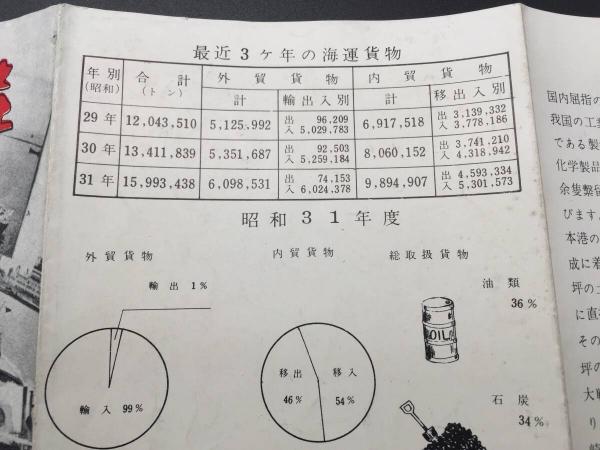 最近3ケ年の海運貨物
年別 (昭和) 合計 (トン) 外貿貨物 内貿貨物
計 輸出入別 計 移出入別
29年 12,043,510 5,125,992 出 96,209 入 5,029,783 6,917,518 出 3,139,332 入 3,778,186
30年 13,411,839 5,351,687 出 92,503 入 5,259,184 8,060,152 出 3,741,210 入 4,318,942
31年 15,993,438 6,098,531 出 74,153 入 6,024,378 9,894,907 出 4,593,334 入 5,301,573
昭和31年度
外貿貨物 内貿貨物 総取扱貨物
輸出 1%
輸入 99%
移出 46%
移入 54%
油類
36%
OIL
石炭
34%
国内屈指の
我国の工業
である製
化学製品
余隻繋留
びます
本港の
成に着
坪の土
に直
その
坪の
大戦
り